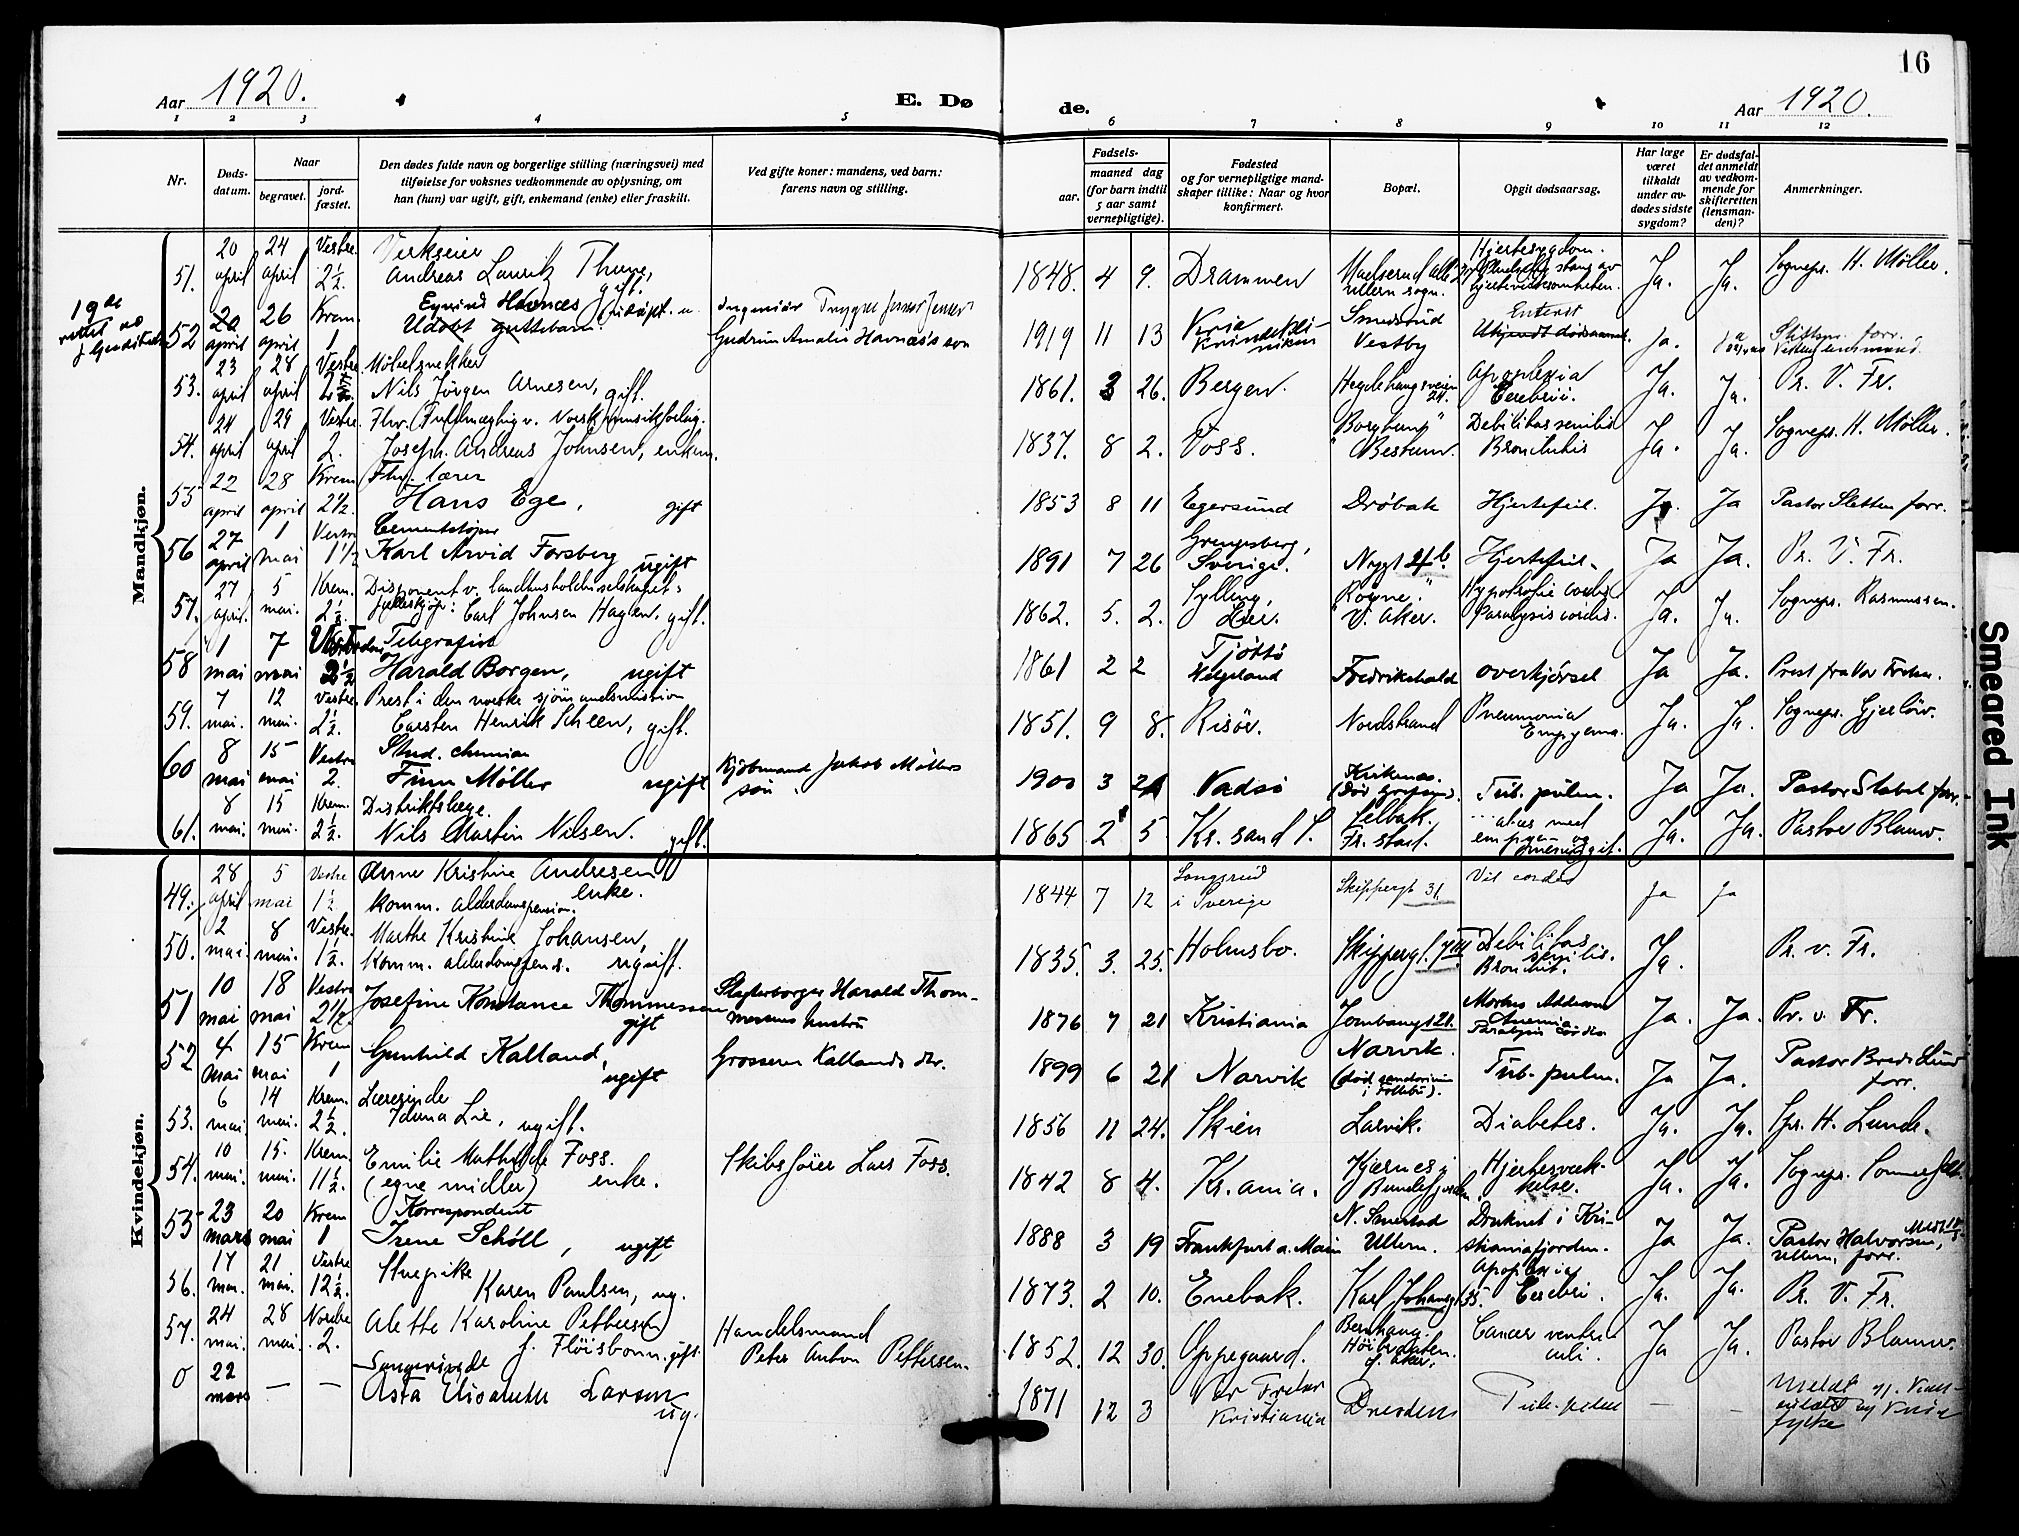 16
Aar 1920.
E. Dø
de.
Aar 1920.
1 2 3 4 5 6 7 8 9 10 11 12
Nr.
Døds-
datum.
Naar
begravet.
jord-
fæstet.
Den dødes fulde navn og borgerlige stilling (næringsvei) med
tilføielse for voksnes vedkommende av oplysning, om
han (hun) var ugift, gift, enkemand (enke) eller fraskilt.
Ved gifte koner: mandens, ved barn:
farens navn og stilling.
Fødsels-
aar.
maaned dag
(for barn indtil
5 aar samt
vernepligtige).
Fødested
og for vernepligtige mand-
skaper tillike: Naar og hvor
konfirmert.
Bopæl.
Opgit dødsaarsag.
Har læge
været
tilkaldt
under av-
dødes sidste
sygdom?
Er dødsfal-
det anmeldt
av vedkom-
mende for
skifteretten
(lensman-
den)?
Anmerkninger.
Mandkjøn.
51. 20 april 24 april Vestre 2½.
Verkseier
Andreas Lauritz Thune, gift.
1848. 4 9. Drammen
Ullern sogn.
Hjertesygdom.
Ja. Ja. Sognepr. H. Møller.
19de
52 20 april 26 april Krem. 1
Eyvind Havnæs
Udøbt guttebarn
Ingeniør Trygve
Gudrun Amalie Havnæs's søn
1919 11 13
Smedsrud
Vestby
Enterit
Ukjendt dødsaarsak
Ja.
53. 23 april 28 april Vestre
Møbelsnekker
Nils Jørgen Arnesen, gift.
1861. 3 26. Bergen.
Hegdehaugsveien 24.
Apoplexia
Cerebri.
Ja. Ja. Pr. V. Fr.
54. 24 april 29 april Vestre 2.
Fhv. Fuldmægtig v. Norsk musikforlag.
Joseph Andreas Johnsen, enkem.
1837. 8 2. Voss.
"Borghaug"
Bestum.
Debilitas senilis
Bronchitis
Ja. Ja. Sognepr. H. Møller.
55 22 april 28 april Krem 2½.
Fhv. lærer
Hans Ege, gift
1853 8 11 Egersund Drøbak Hjertefeil. Ja. Ja Pastor Sletten forr.
56 27 april 1 mai Vestre 1½
Cementstøper
Karl Arvid Forsberg ugift
1891 7 26
Grengesberg,
Sverige.
Nygt 21b.
Hjertefeil.
Ja Ja. Pr. V. Fr.
57. 27 april. 5 mai. Krem. 2½.
Disponent v. landhusholdn.selskapets
felleskjøp: Carl Johnsen Haglen. gift.
1862. 5. 2.
Sylling,
Lier.
"Røyne,"
V. Aker.
Hypotrofie cordis
Paralysis cordis.
Ja. Ja. Sognepr. Rasmussen.
58 1 mai 7 mai 2½
Telegrafist
Harald Borgen, ugift
1861 2 2
Tjøttø
Helgeland
Fredrikshald overkjørsel Ja Ja. Prest fra Vor Frelsers.
59. 7 mai. 12 mai. Vestre. 2½.
Prest i den norske sjømandsmission
Carsten Henrik Scheen, gift.
1851. 9 8. Risør. Nordstrand
Pneumonia
Empyema.
Ja. Ja. Sognepr. Gjerløw.
60 8 mai 15 mai Vestre 2.
Stud. chemiæ
Finn Møller ugift
Kjøbmand Jakob Møllers
søn.
1900 3 21 Vadsø
Kirkenes.
Tub. pulm. Ja Ja. Pastor Stabel forr.
61. 8 mai. 15 mai. Krem. 2½.
Distriktslæge.
Nils Martin Nilsen. gift.
1865 2 5. Kr. sand S.
Selbak,
Fr. stad.
empyem og
Ja. Ja. Pastor Blauw.
Kvindekjøn.
49. 28 april 5 mai Vestre 1½
Anne Kristine Andresen
komm. alderdomspension. enke.
1844 7 12
i Sverige
Skippergt 31.
Vit. cordis
Ja Ja
50. 2 mai. 8 mai. Vestre. 1½.
Marthe Kristine Johansen,
komm. alderdomspens. ugift.
1835. 3. 25. Holmsbo. Skippergt.
Debilitas
senilis.
Bronchit.
Ja. Pr. v. Fr.
51 10 mai 18 mai Vestre 2½.
Josefine Konstance Thommessen
gift
Slagterborger Harald Thom-
mesens hustru
1876 7 21 Kristiania
Morbus Addisoni
Anæmia
Paralysis cordis
Ja. Ja. Pr. v. Fr.
52 4 mai 15 mai Krem 1
Gunhild Kalland, ugift
Grosserer Kallands dtr.
1899 6 21 Narvik
Narvik.
(død sanatorium
i Follebu).
Tub. pulm. Ja Ja.
forr.
53. 6 mai. 14 mai. Krem. 2½.
Lærerinde
Iduna Lie, ugift.
1856 11 24. Skien Larvik. Diabetes. Ja. Ja. Spr. H. Lunde.
54. 10 mai. 15. mai. Krem. 11½.
Emilie Mathilde Foss.
(egne midler) enke.
Skibsfører Lars Foss.
1842 8 4. Kr.ania.
Hjertesvæk-
kelse.
Ja. Ja. Sognepr. Sommerfeldt.
55 23 mars 20 mai Krem 1
Korrespondent
Irene Schöll, ugift
1888 3 19 Frankfurt a. Main
N. Smestad
Ullern.
Druknet i Kri-
stianiafjorden.
Ja Ja. Pastor Halvorsen,
Ullern, forr.
56. 17 mai. 21 mai. Vestre 12½.
Stuepike
Karen Paulsen, ug.
1873. 2 10. Enebak. Karl Johansgt 35.
Apoplexia
Cerebri.
Ja. Ja. Pr. V. Fr.
57. 24 mai. 28 mai. Nordre 2.
Alette Karoline Pettersen
f. Fløisbonn. gift.
Handelsmand
Peter Anton Pettersen.
1852. 12 30. Oppegaard.
Bernhaug.
Ø. Aker.
Cancer ventri-
culi.
Ja Ja. Pastor Blauw.
0 22 mars — —
Sangerinde
Asta Elisabeth Larsen
ug.
1871 12 3
Vor Frelser
Kristiania
Dresden Tub. pulm — —
Meldt
fylke
Smeared Ink